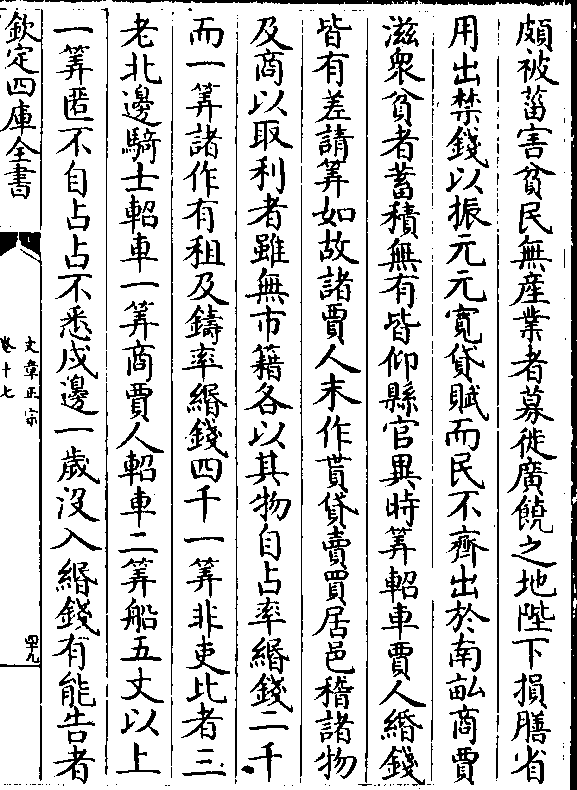 頗被菑害貧民無產業者募徙廣饒之地陛下損膳省
用出禁錢以振元元寛貸賦而民不齊出於南畝商賈
滋衆貧者蓄積無有皆仰縣官異時筭軺車賈人緡錢
皆有差請筭如故諸賈人末作貰貸賣買居邑稽諸物
及商以取利者雖無市籍各以其物自占率緡錢二千
而一筭諸作有租及鑄率緡錢四千一筭非吏比者三
老北邊騎士軺車一筭商賈人軺車二筭船五丈以上
一筭匿不自占占不悉戍邊一歲沒入緡錢有能告者
欽定四庫全書
文章正宗
卷十七
四九